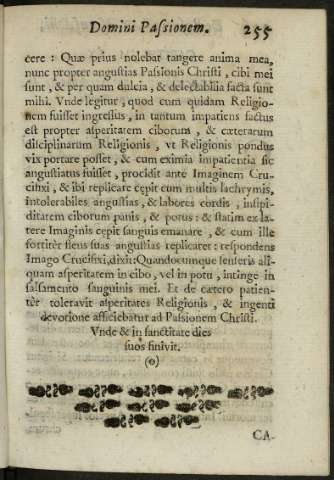 Domini Passionem. 255
cere : Quæ prius nolebat tangere anima mea,
nunc propter angustias Passionis Christi , cibi mei
sunt , & per quam dulcia , & delectabilia facta sunt
mihi. Vnde legitur , quod cum quidam Religio-
nem fuisset ingressus , in tantum impatiens factus
est propter asperitatem ciborum , & cæterarum
disciplinarum Religionis , vt Religionis pondus
vix portare posset , & cum eximia impatientia sic
angustiatus fuisset , procidit ante Imaginem Cru-
cifixi , & ibi replicare cępit cum multis lachrymis,
intolerabiles angustias , & labores cordis , insipi-
ditatem ciborum panis , & potus : & statim ex la-
tere Imaginis cepit sanguis emanare , & cum ille
fortitèr flens suas angustias replicaret : respondens
Imago Crucifixi, dixit: Quandocumque senseris ali-
quam asperitatem in cibo , vel in potu , intinge in
salsamento sanguinis mei. Et de cætero patien-
tèr toleravit asperitates Religionis , & ingenti
devotione afficiebatur ad Passionem Christi.
Vnde & in sanctitate dies
suos finivit.
CA-